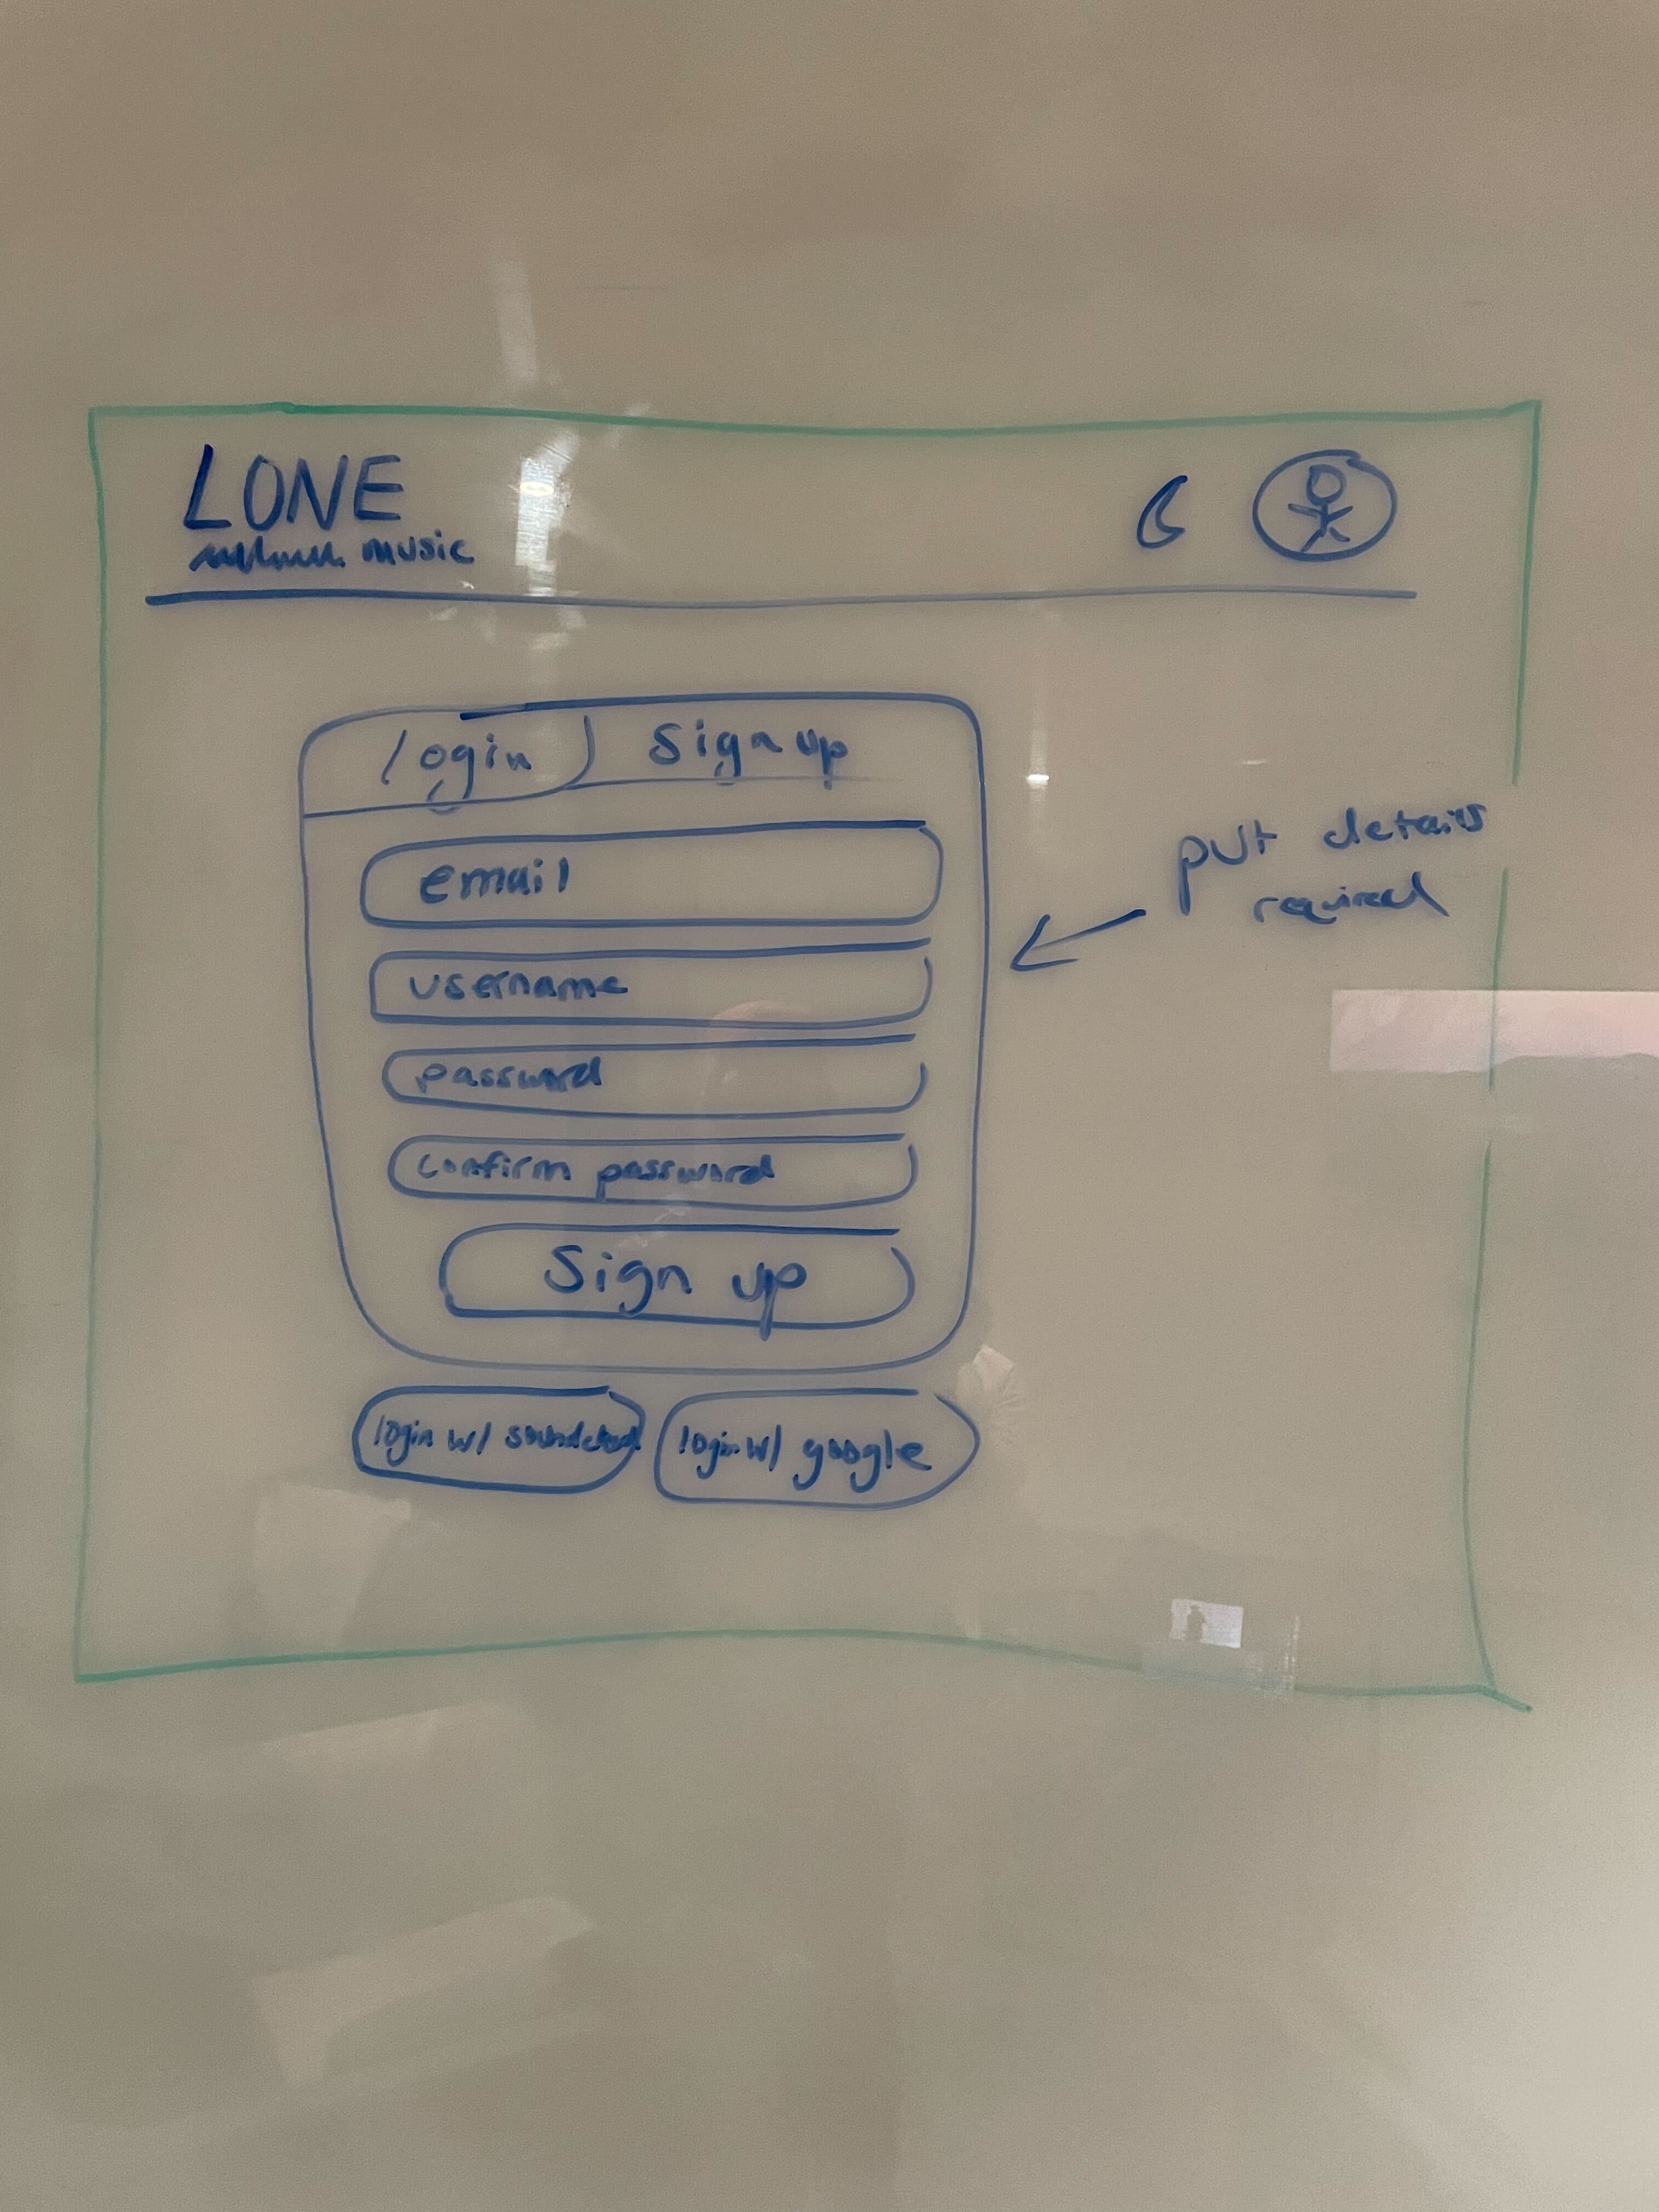 LONE
music
login
Sign up
email
username
password
confirm password
Sign up
login w/ soundcloud
login w/ google
put details
required